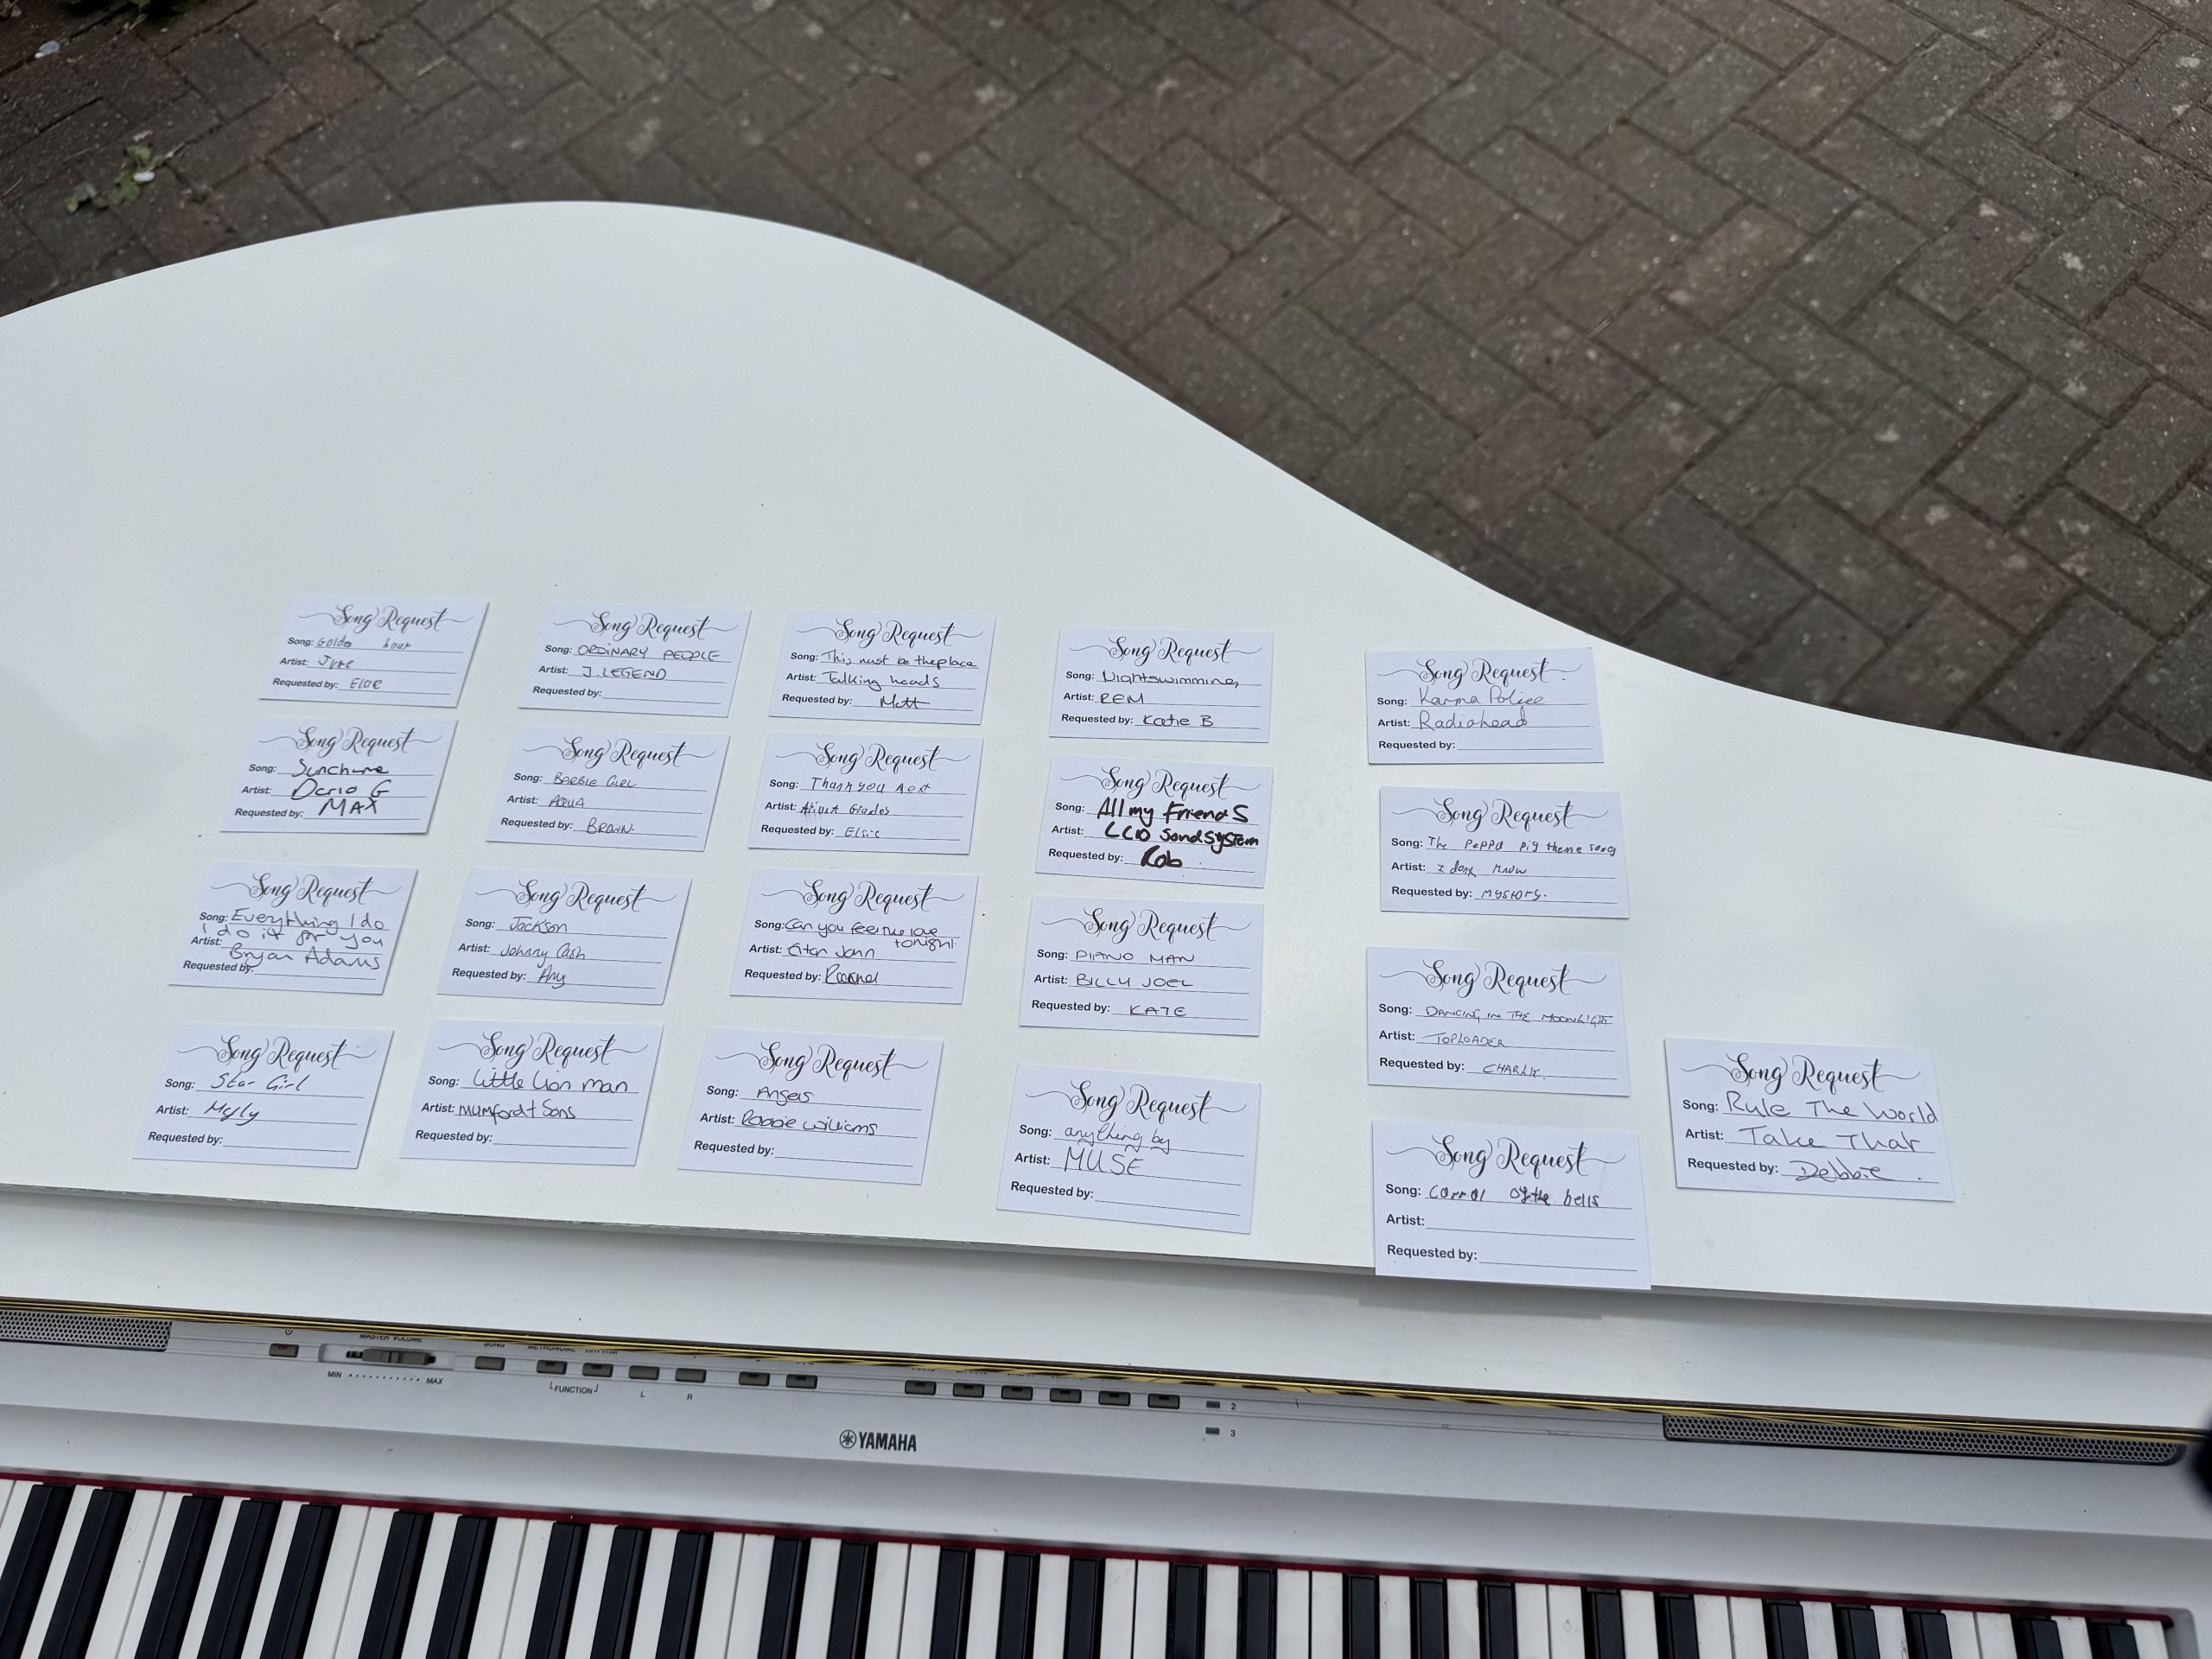 Song Request
Song: Golden hour
Artist: Jvke
Requested by: Elsie
Song Request
Song: Sunchyme
Artist: Dario G
Requested by: MAX
Song Request
Song: Everything I do
I do it for you
Artist: Bryan Adams
Requested by:
Song Request
Song: Star Girl
Artist: Mcfly
Requested by:
Song Request
Song: ORDINARY PEOPLE
Artist: J. LEGEND
Requested by:
Song Request
Song: BARBIE GIRL
Artist: AQUA
Requested by:
Song Request
Song: Jackson
Artist: Johnny Cash
Requested by: Amy
Song Request
Song: Little Lion man
Artist: Mumford + Sons
Requested by:
Song Request
Song: This must be the place
Artist: Talking heads
Requested by: Matt
Song Request
Song: Thank you next
Artist:
Requested by: Elsie
Song Request
Song: Can you feel the love
tonight
Artist: Elton John
Requested by: Rachel
Song Request
Song: Angels
Artist: Robbie Williams
Requested by:
Song Request
Song: Nightswimming
Artist: REM
Requested by: Katie B
Song Request
Song: All my friends
Artist: LCD SoundSystem
Requested by: Rob
Song Request
Song: PIANO MAN
Artist: BILLY JOEL
Requested by: KATE
Song Request
Song: anything by
Artist: MUSE
Requested by:
Song Request
Song: Karma Police
Artist: Radiohead
Requested by:
Song Request
Song: The Peppa pig theme song
Artist: I dont know
Requested by: mystory.
Song Request
Song: DANCING IN THE MOONLIGHT
Artist: TOPLOADER
Requested by: CHARLIE.
Song Request
Song: Carrol of the bells
Artist:
Requested by:
Song Request
Song: Rule The World
Artist: Take That
Requested by: Debbie.
MASTER VOLUME
MIN MAX
FUNCTION
L R
2
3
YAMAHA